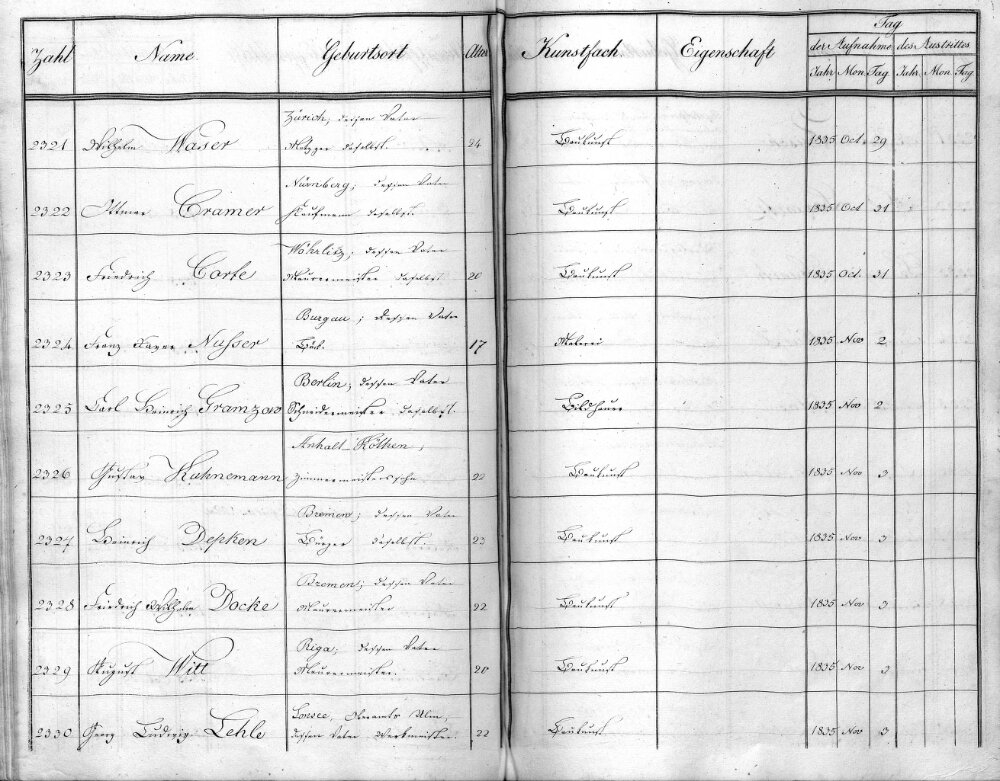 Zahl Name Geburtsort Alter Kunstfach Eigenschaft Tag
der Aufnahme des Austrittes
Jahr Mon. Tag Jahr. Mon. Tag
Zürich, dessen Vater
2321 Wilhelm Waser Metzger daselbst. 24 Baukunst 1835 Oct. 29
Nürnberg; dessen Vater
2322 Ottmar Cramer Kaufmann daselbst. Baukunst 1835 Oct 31
Wöhrlitz; dessen Vater
2323 Friedrich Corte Maurermeister daselbst 20 Baukunst 1835 Oct. 31
Burgau; dessen Vater
2324 Franz Xaver Nusser 17 Malerei 1835 Nov 2
Berlin; dessen Vater
2325 Carl Heinrich Gramzow Schneidermeister daselbst. Bildhauer 1835 Nov 2
Anhalt Köthen,
2326 Gustav Kuhnemann Zimmermeisterssohn 22 Baukunst 1835 Nov 3
Bremen; dessen Vater
2327 Heinrich Depken Bürger daselbst. 23 Baukunst 1835 Nov 3
Bremen; dessen Vater
2328 Friedrich Wilhelm Docke Maurermeister 22 Baukunst 1835 Nov 3
Riga; dessen Vater
2329 August Witt Maurermeister. 20 Baukunst 1835 Nov 3
Lonsee, Oberamts Ulm,
2330 Georg Ludwig Lehle dessen Vater Werkmeister 22 Baukunst 1835 Nov 3